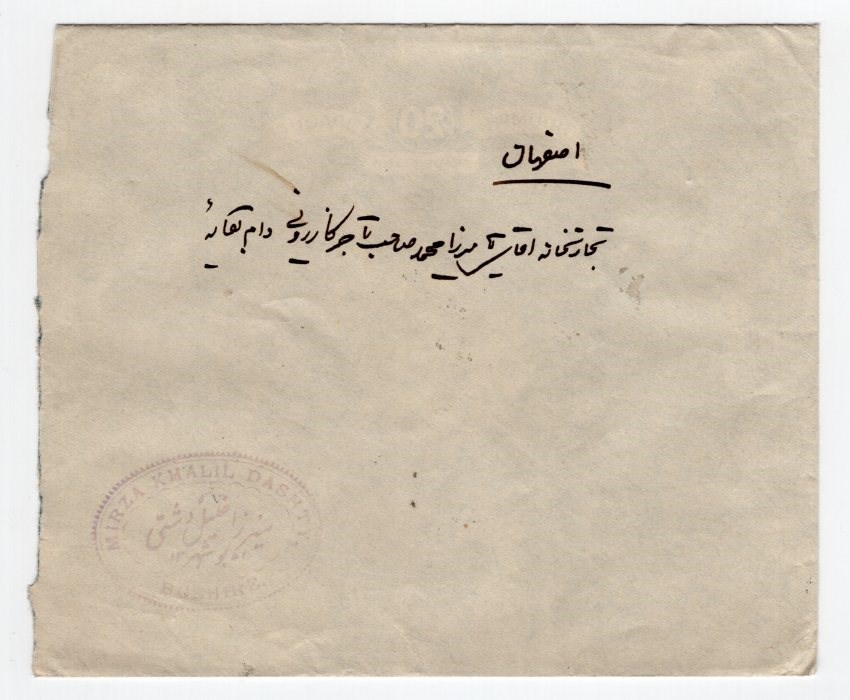 اصفهان
تجارتخانه اقای میرزا محمد صاحب تاجر کازرونی دام بقائه
MIRZA KHALIL DASHTY.
میرزا خلیل دشتی
بوشهر
BUSHIRE.